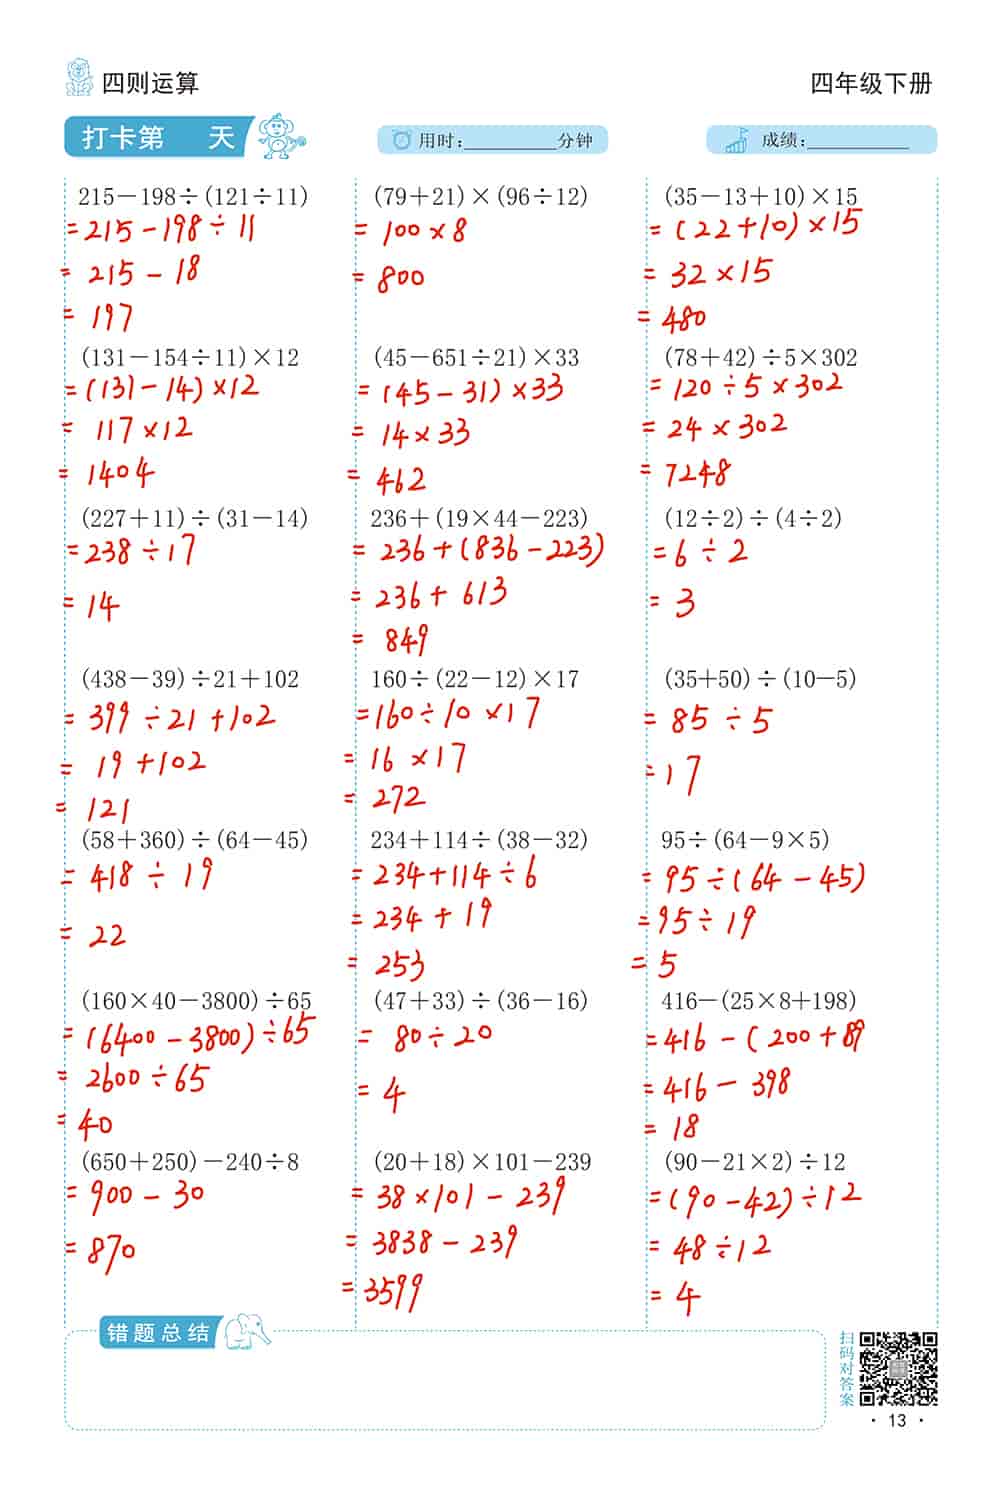 四则运算 四年级下册
打卡第 天 用时：________分钟 成绩：________
215－198÷(121÷11) (79＋21)×(96÷12) (35－13＋10)×15
=215-198÷11 = 100×8 = (22+10)×15
= 215-18 = 800 = 32×15
= 197 = 480
(131－154÷11)×12 (45－651÷21)×33 (78＋42)÷5×302
=(131-14)×12 = (45-31)×33 = 120÷5×302
= 117×12 = 14×33 = 24×302
= 1404 = 462 = 7248
(227＋11)÷(31－14) 236＋(19×44－223) (12÷2)÷(4÷2)
=238÷17 = 236+(836-223) =6÷2
= 14 = 236+613 = 3
= 849
(438－39)÷21＋102 160÷(22－12)×17 (35+50)÷(10－5)
= 399÷21+102 =160÷10×17 = 85÷5
= 19+102 = 16×17 =17
= 121 = 272
(58＋360)÷(64－45) 234＋114÷(38－32) 95÷(64－9×5)
= 418÷19 = 234+114÷6 = 95÷(64-45)
= 22 = 234+19 =95÷19
= 253 = 5
(160×40－3800)÷65 (47＋33)÷(36－16) 416－(25×8＋198)
= (6400-3800)÷65 = 80÷20 =416-(200+89
= 2600÷65 = 4 =416-398
= 40 = 18
(650＋250)－240÷8 (20＋18)×101－239 (90－21×2)÷12
= 900-30 = 38×101-239 =(90-42)÷12
= 870 = 3838-239 = 48÷12
=3599 = 4
错题总结
扫码对答案
· 13 ·